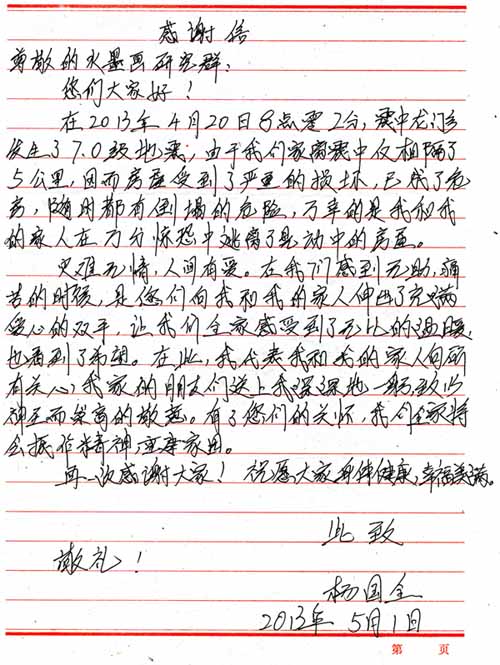 感谢信
尊敬的水墨画研究群：
您们大家好！
在2013年4月20日8点零2分，震中龙门乡
发生了7.0级地震，由于我们家离震中仅相隔了
5公里，因而房屋受到了严重的损坏，已成了危
房，随时都有倒塌的危险，万幸的是我和我
的家人在万分惊恐中逃离了晃动中的房屋。
灾难无情，人间有爱。在我们感到无助，痛
苦的时候，是您们向我和我的家人伸出了充满
爱心的双手，让我们全家感受到了无比的温暖，
也看到了希望。在此，我代表我和我的家人向所
有关心我家的朋友们送上我深深地一躬，致以
神圣而崇高的敬意。有了您们的关怀，我们全家将
会振作精神，重建家园。
再一次感谢大家！祝愿大家身体健康，幸福美满。
此致
敬礼！
杨国全
2013年5月1日
第 页